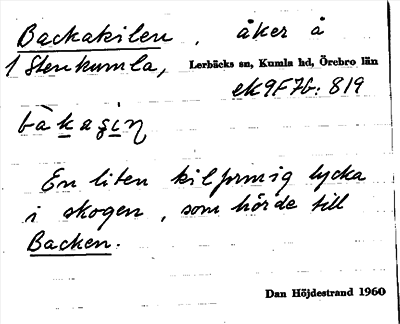 Backakilen, åker å
1 Stenkumla, Lerbäcks sn, Kumla hd, Örebro län
ek9F7b: 819
bàkaʂiŋ
En liten kilformig lycka
i skogen, som hörde till
Backen.
Dan Höjdestrand 1960